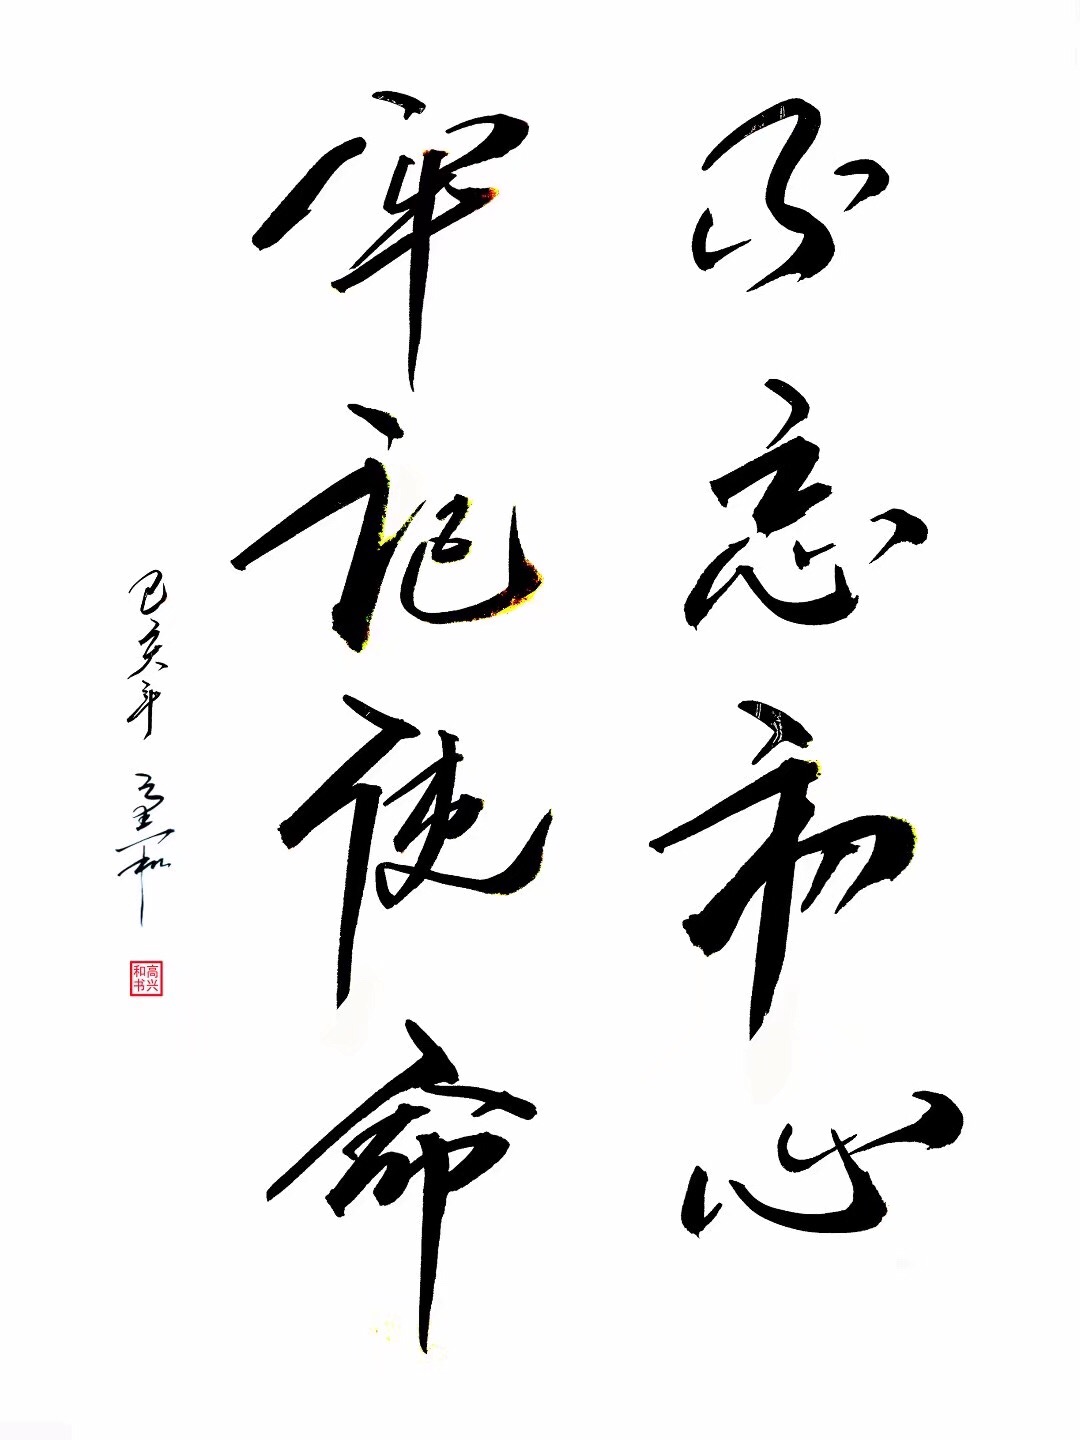 不忘初心
牢记使命
己亥年 高兴和
高兴
和书